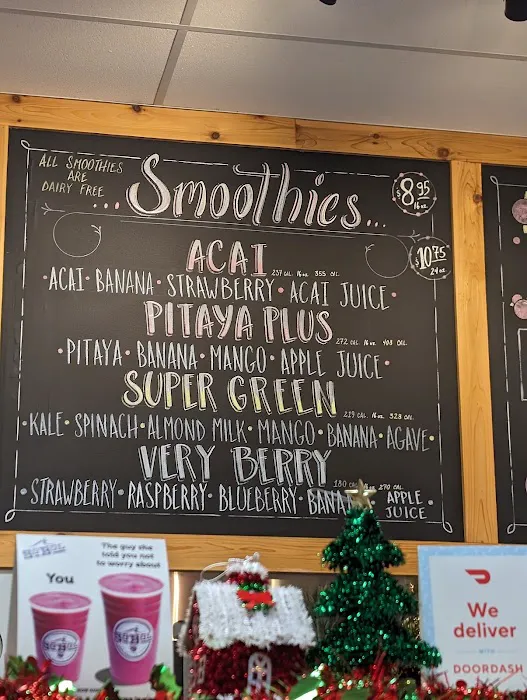 ALL SMOOTHIES
ARE
DAIRY FREE
...Smoothies...
$8.95
16 oz.
$10.75
24 oz.
ACAI 237 CAL. 16 oz. 355 CAL.
·ACAI·BANANA·STRAWBERRY·ACAI JUICE·
PITAYA PLUS 272 CAL. 16 oz. 408 CAL.
·PITAYA·BANANA·MANGO·APPLE JUICE·
SUPER GREEN 219 CAL. 16 oz. 328 CAL.
·KALE·SPINACH·ALMOND MILK·MANGO·BANANA·AGAVE·
VERY BERRY 180 CAL. 270 CAL.
·STRAWBERRY·RASPBERRY·BLUEBERRY· APPLE
JUICE·
The guy she
told you not
to worry about
You
We
deliver
WITH
DOORDASH